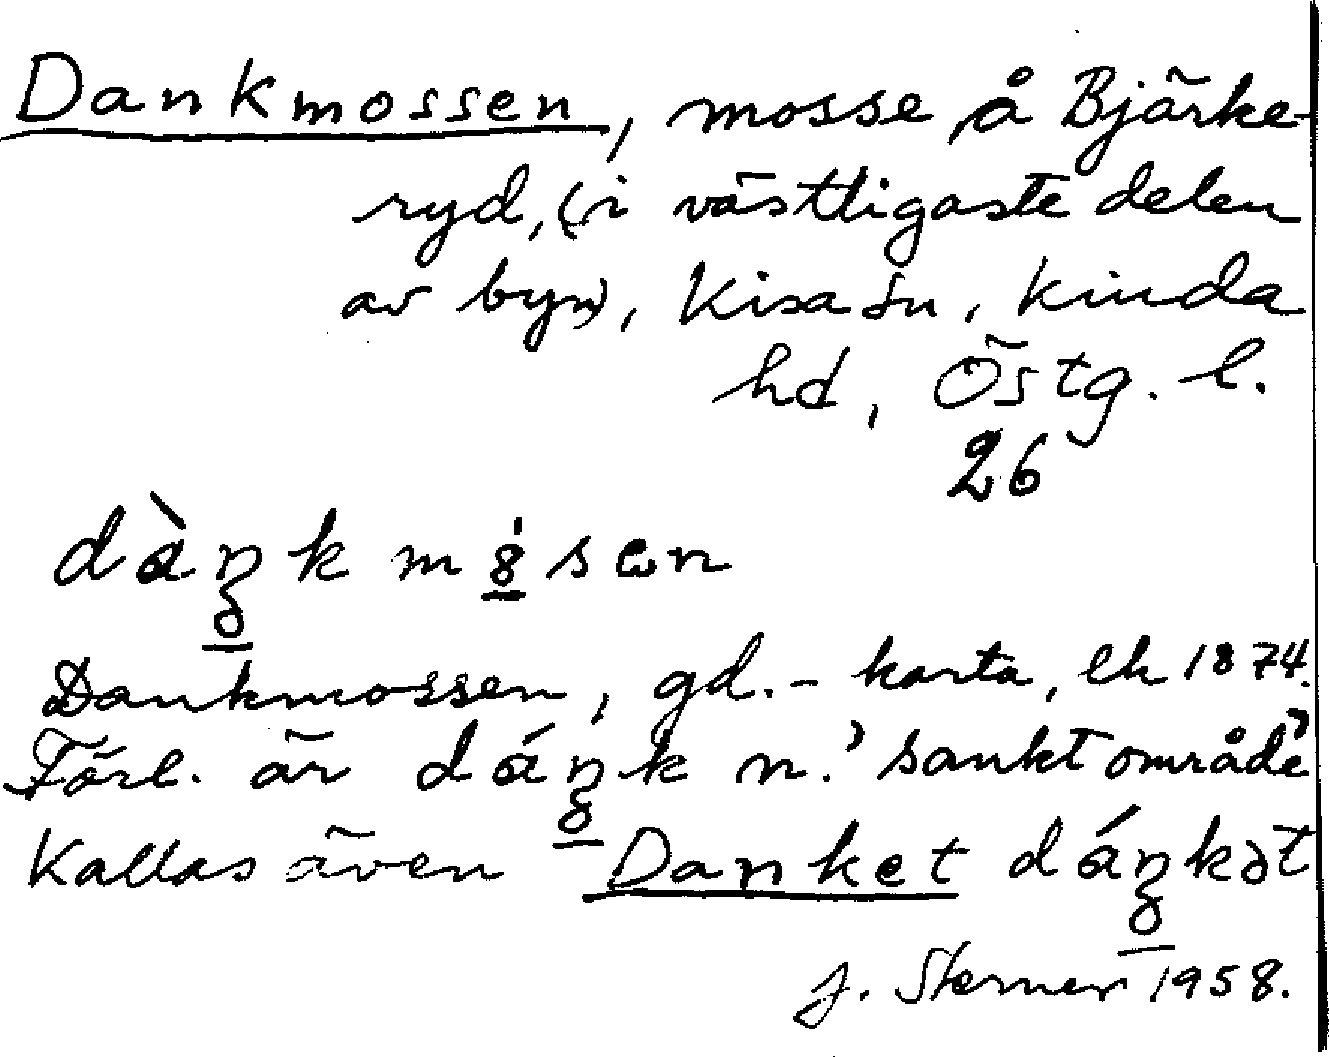 Dankmossen, mosse å Bjärke-
ryd, (i västligaste delen
av byn), Kisa sn, Kinda
hd, Östg. l.
26
dàŋk m såsen
Dankmossen, gd.- karta, ek 1874.
Förl. är dáŋk n. 'sankt område'
Kallas även Danket dáŋkət
J. Sterner 1958.